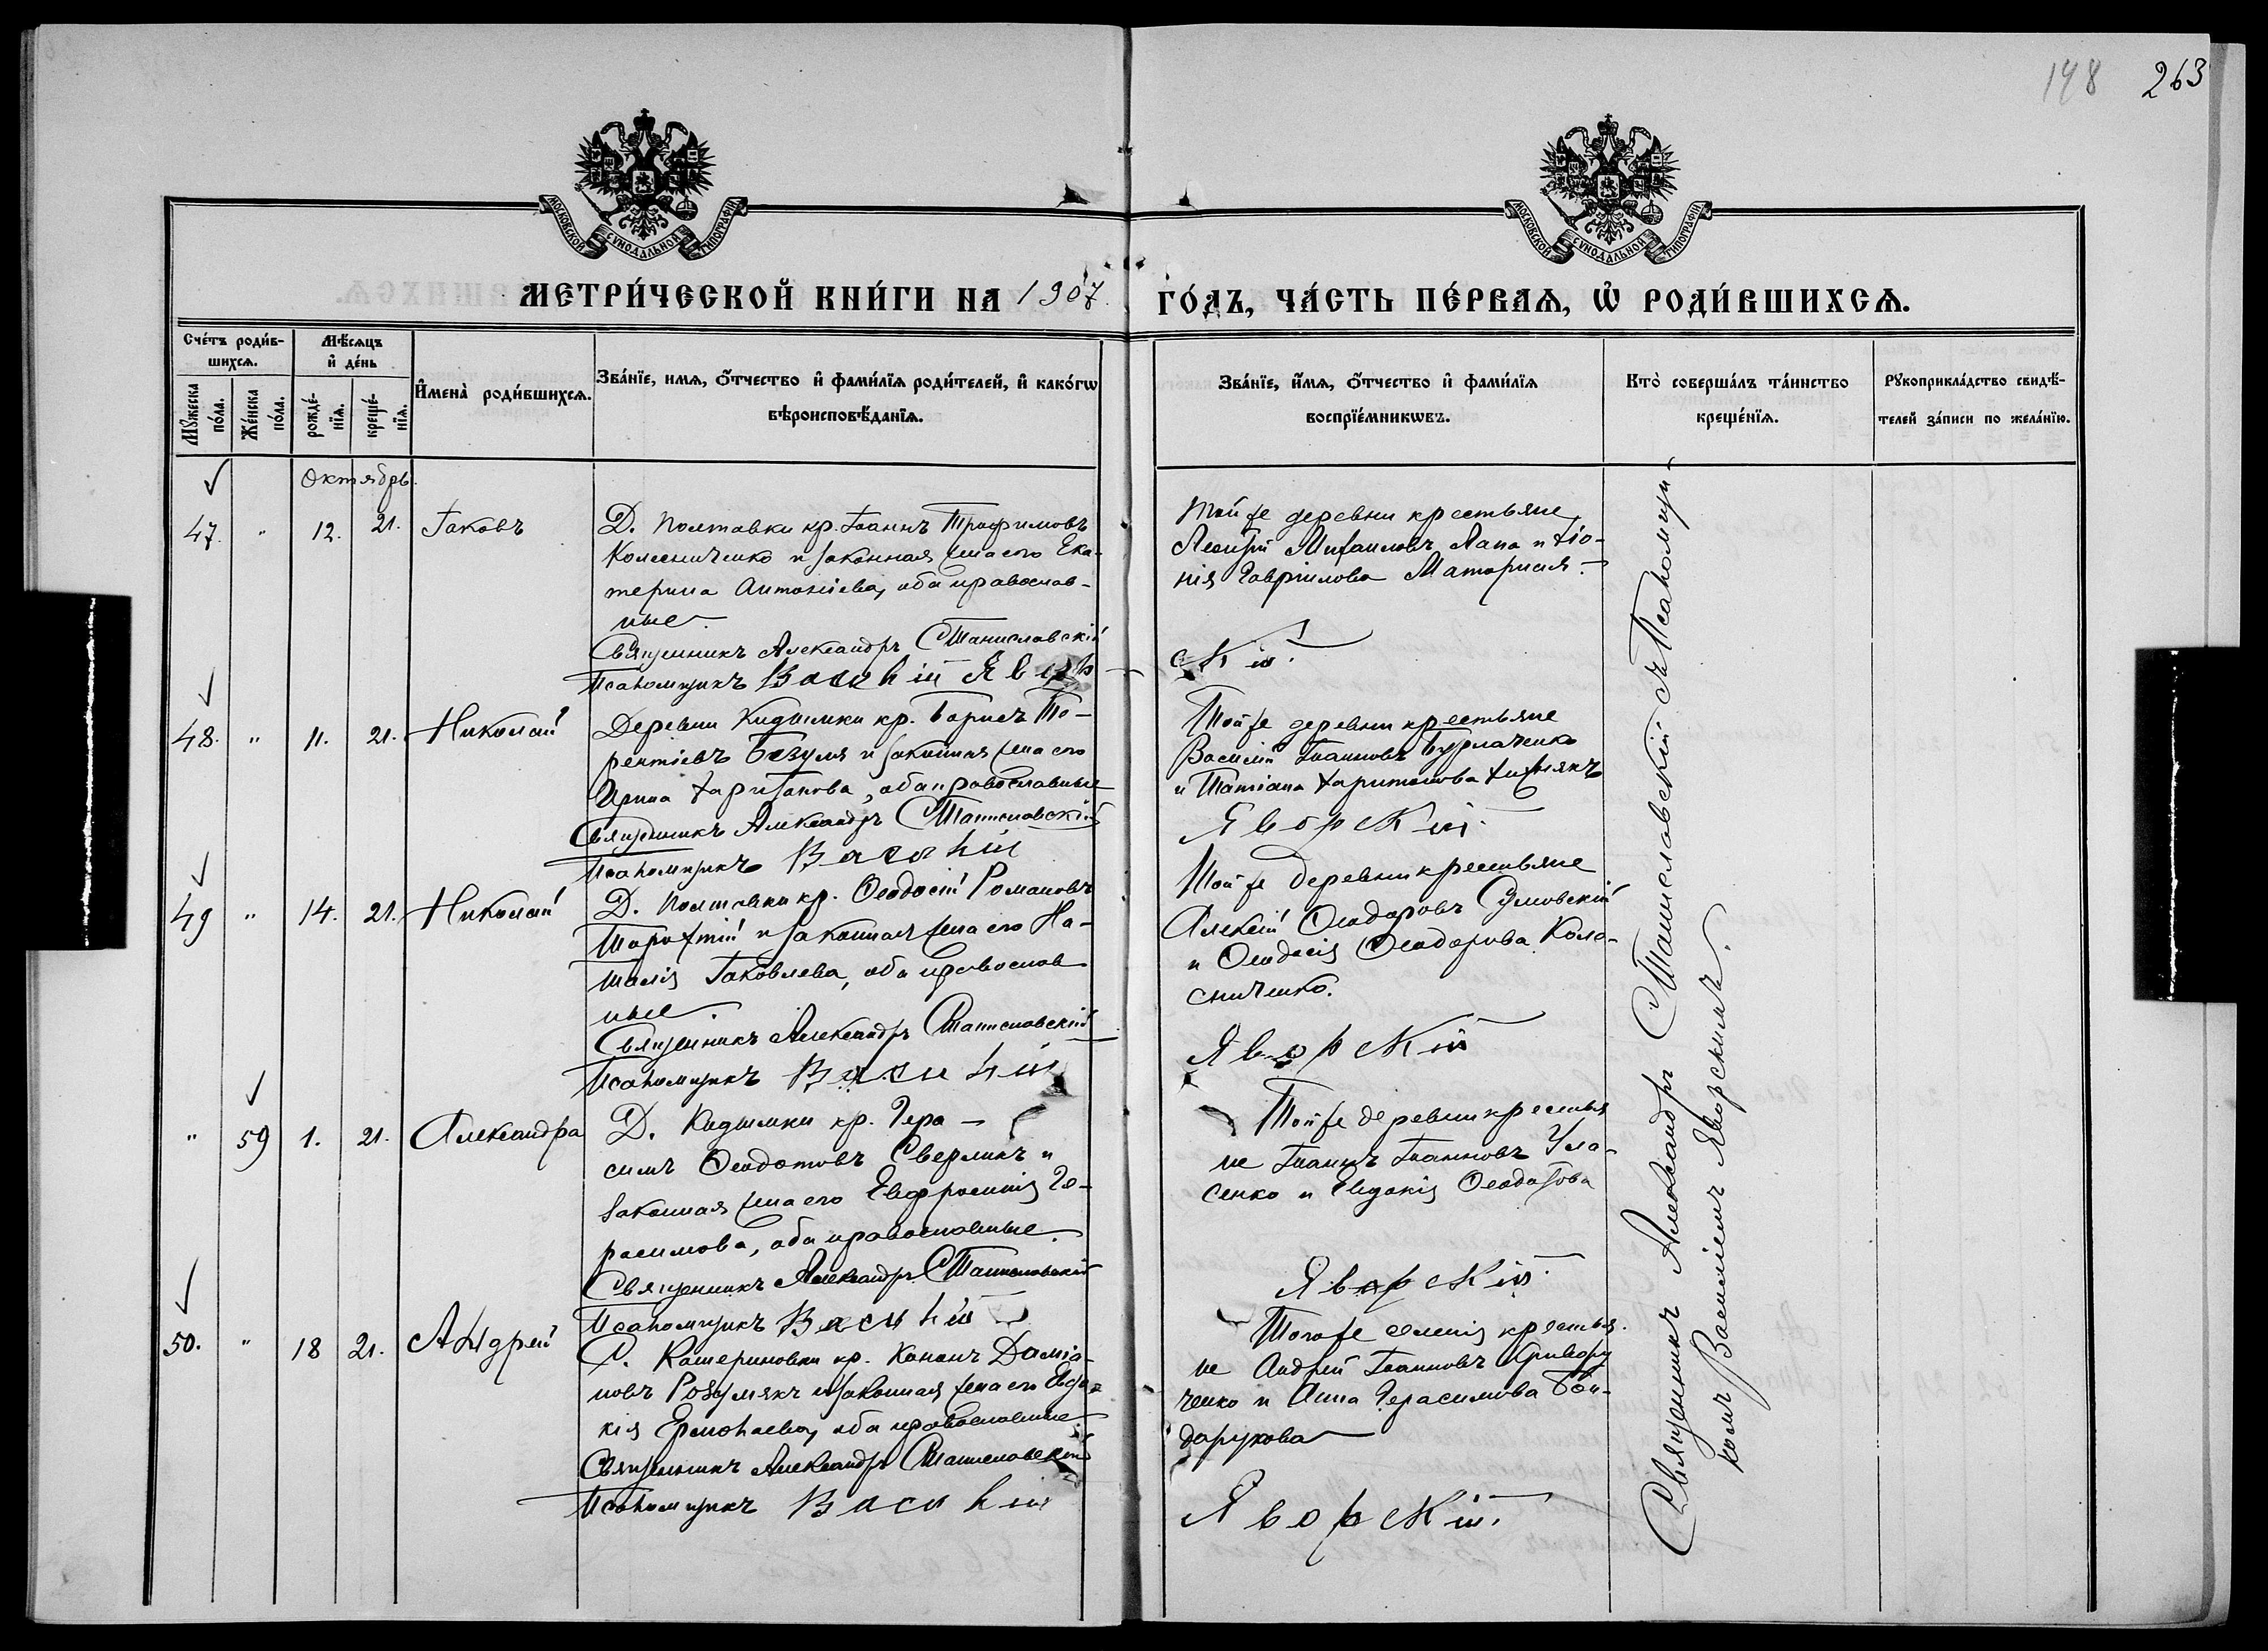 148 263
МОСКОВСКОЙ СѴНОДАЛЬНОЙ ТИПОГРАФІИ
МОСКОВСКОЙ СѴНОДАЛЬНОЙ ТИПОГРАФІИ
МЕТРИ́ЧЕСКОЙ КНИ́ГИ НА 1907. ГО́ДЪ, ЧА́СТЬ ПЕ́РВАѦ, Ѡ҆ РОДИ́ВШИХСѦ.
Сче́тъ роди́в-
шихсѧ.
Мꙋжеска по́ла.
Же́нска по́ла.
Мѣ́сѧцъ
и҆ де́нь
рожде́-
нїѧ.
креще́-
нїѧ.
И҆мена̀ роди́вшихсѧ.
Зва́нїе, имѧ, ѻ҆́тчество и҆ фами́лїѧ роди́телей, и҆ како́гѡ
вѣроисповѣ́данїѧ.
Зва́нїе, и҆́мѧ, ѻ҆́тчество и҆ фами́лїѧ
воспрїе́мникѡвъ.
Кто̀ соверша́лъ та́инство
креще́нїѧ.
Рꙋкоприкла́дство свидѣ́-
телей за́писи по жела́нїю.
Октябрь.
47. " 12. 21. Іаковъ
Д. Полтавки кр. Іоаннъ Трофимовъ
Колесниченко и законная жена его Ека-
терина Антоніева, оба православ-
ные.
Священникъ Александръ Станиславскій
Псаломщикъ Василій Явор-
Той же деревни крестьяне
Михаиловъ Лапа и Хіо-
нія Гавріилова
скій.
48. " 11. 21. Николай
Деревни Кидымки кр. Борисъ
рентіевъ Безуля и законная жена его
Ирина Харитонова, оба православные
Священникъ Александръ Станиславскій
Псаломщикъ Василій
Той же деревни крестьяне
Василій Іоанновъ Бурлаченко
и Татіана Харитонова
Яворскій.
49 " 14. 21. Николай
Д. Полтавки кр. Ѳеодосій Романовъ
и законная жена его На-
талія Іаковлева, оба православ
ные.
Священникъ Александръ Станиславскій
Псаломщикъ Василій
Той же деревни крестьяне
Алексій Ѳеодоровъ Сумовскій
и Ѳеодосія Ѳеодорова Коле-
сниченко.
Яворскій
" 59 1. 21. Александра
Д. Кидымки кр. Гера-
симъ Ѳеодотовъ Сверликъ и
законная жена его Евфросинія Ге-
расимова, оба православные.
Священникъ Александръ Станиславскій
Псаломщикъ Василій
Той же деревни крестья
не Іоаннъ Іоанновъ Ула-
сенко и Евдокія Ѳеодотова
Яворскій.
50. " 18 21. Андрей
С. Катериновки кр. Кононъ Даміа-
новъ Розумякъ и законная жена его Евдо-
кія Ермолаева, оба православные.
Священникъ Александръ Станиславскій
Псаломщикъ Василій
Того же селенія крестья-
не Андрей Іоанновъ Криво
ченко и Анна Герасимова Бон-
дарукова
Яворскій.
Священникъ Александръ Станиславскій съ Псаломщи-
комъ Василіемъ Яворскимъ.